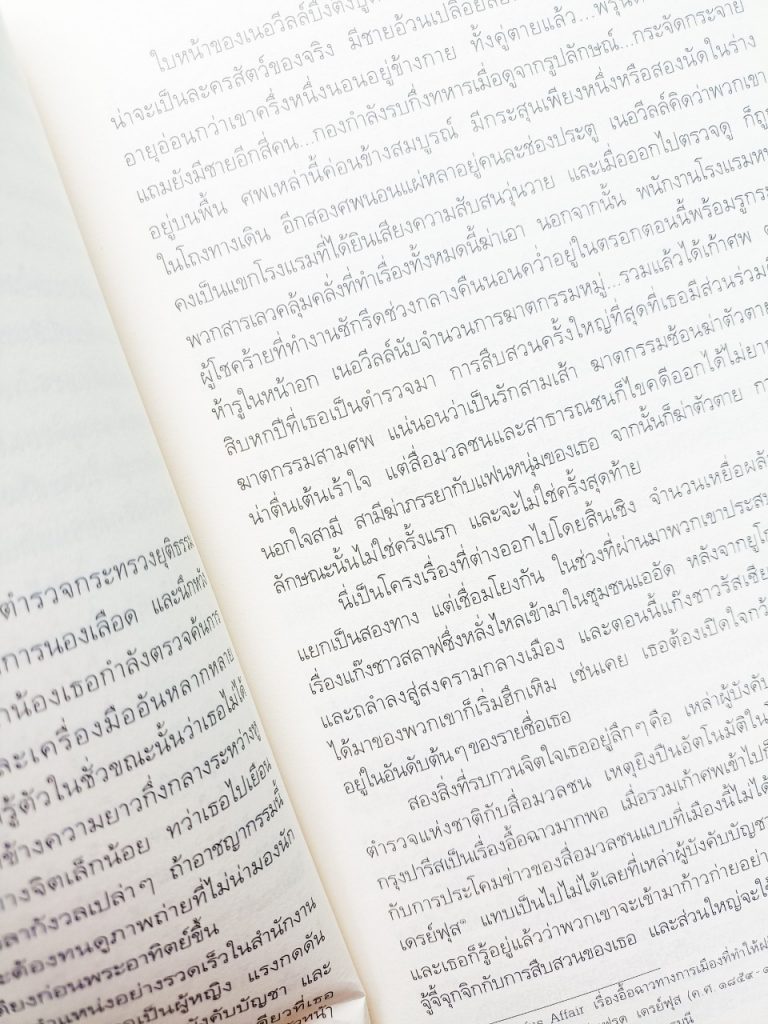 ตำรวจกระทรวงยุติธรรม
การนองเลือด และนึกหวัง
น้องเธอกำลังตรวจค้นการ
ละเครื่องมืออันหลากหลาย
รู้ตัวในชั่วขณะนั้นว่าเธอไม่ได้
ข้างความยาวกึ่งกลางระหว่าง
างจิตเล็กน้อย ทว่าเธอไปเยือน
ลากังวลเปล่าๆ ถ้าอาชญากรรมนี้
ะต้องทนดูภาพถ่ายที่ไม่น่ามองนัก
ดียงก่อนพระอาทิตย์ขึ้น
ตำแหน่งอย่างรวดเร็วในสำนักงาน
เป็นผู้หญิง แรงกดดัน
ังคับบัญชา และ
ดียวที่เธอ
ใบหน้าของเนอวีลล์บึ้งตึง
น่าจะเป็นละครสัตว์ของจริง มีชายอ้วนเปลือย
อายุอ่อนกว่าเขาครึ่งหนึ่งนอนอยู่ข้างกาย ทั้งคู่ตายแล้ว...
แถมยังมีชายอีกสี่คน...กองกำลังรบกึ่งทหารเมื่อดูจากรูปลักษณ์...กระจัดกระจาย
อยู่บนพื้น ศพเหล่านี้ค่อนข้างสมบูรณ์ มีกระสุนเพียงหนึ่งหรือสองนัดในร่าง
ในโถงทางเดิน อีกสองศพนอนแผ่หลาอยู่คนละช่องประตู เนอวีลล์คิดว่าพวกเขา
คงเป็นแขกโรงแรมที่ได้ยินเสียงความสับสนวุ่นวาย และเมื่อออกไปตรวจดู ก็ถูก
พวกสารเลวคลุ้มคลั่งที่ทำเรื่องทั้งหมดนี้ฆ่าเอา นอกจากนั้น พนักงานโรงแรม
ผู้โชคร้ายที่ทำงานซักรีดช่วงกลางคืนนอนคว่ำอยู่ในตรอกตอนนี้พร้อมรูกระ
ห้ารูในหน้าอก เนอวีลล์นับจำนวนการฆาตกรรมหมู่...รวมแล้วได้เก้าศพ
สิบหกปีที่เธอเป็นตำรวจมา การสืบสวนครั้งใหญ่ที่สุดที่เธอมีส่วนร่วม
ฆาตกรรมสามศพ แน่นอนว่าเป็นรักสามเส้า ฆาตกรรมซ้อนฆ่าตัวตาย
น่าตื่นเต้นเร้าใจ แต่สื่อมวลชนและสาธารณชนก็ไขคดีออกได้ไม่ยาก
นอกใจสามี สามีฆ่าภรรยากับแฟนหนุ่มของเธอ จากนั้นก็ฆ่าตัวตาย
ลักษณะนั้นไม่ใช่ครั้งแรก และจะไม่ใช่ครั้งสุดท้าย
นี่เป็นโครงเรื่องที่ต่างออกไปโดยสิ้นเชิง จำนวนเหยื่อ
แยกเป็นสองทาง แต่เชื่อมโยงกัน ในช่วงที่ผ่านมาพวกเขาประสบ
เรื่องแก๊งชาวสลาฟซึ่งหลั่งไหลเข้ามาในชุมชนแออัด หลังจากยูโร
และถลำลงสู่สงครามกลางเมือง และตอนนี้แก๊งชาวรัสเซีย
ได้มาของพวกเขาก็เริ่มฮึกเหิม เช่นเคย เธอต้องเปิดใจกว้
อยู่ในอันดับต้นๆ ของรายชื่อเธอ
สองสิ่งที่รบกวนจิตใจเธออยู่ลึกๆ คือ เหล่าผู้บังคับ
ตำรวจแห่งชาติกับสื่อมวลชน เหตุยิงปืนอัตโนมัติใน
กรุงปารีสเป็นเรื่องอื้อฉาวมากพอ เมื่อรวมเก้าศพเข้าไป
กับการประโคมข่าวของสื่อมวลชนแบบที่เมืองนี้ไม่ได้
เดรย์ฟุส๑ แทบเป็นไปไม่ได้เลยที่เหล่าผู้บังคับบัญชา
และเธอก็รู้อยู่แล้วว่าพวกเขาจะเข้ามาก้าวก่ายอย่า
จู้จี้จุกจิกกับการสืบสวนของเธอ และส่วนใหญ่จะ
Affair เรื่องอื้อฉาวทางการเมืองที่ทำให้
เดรย์ฟุส (ค.ศ. ๑๘๕๙-